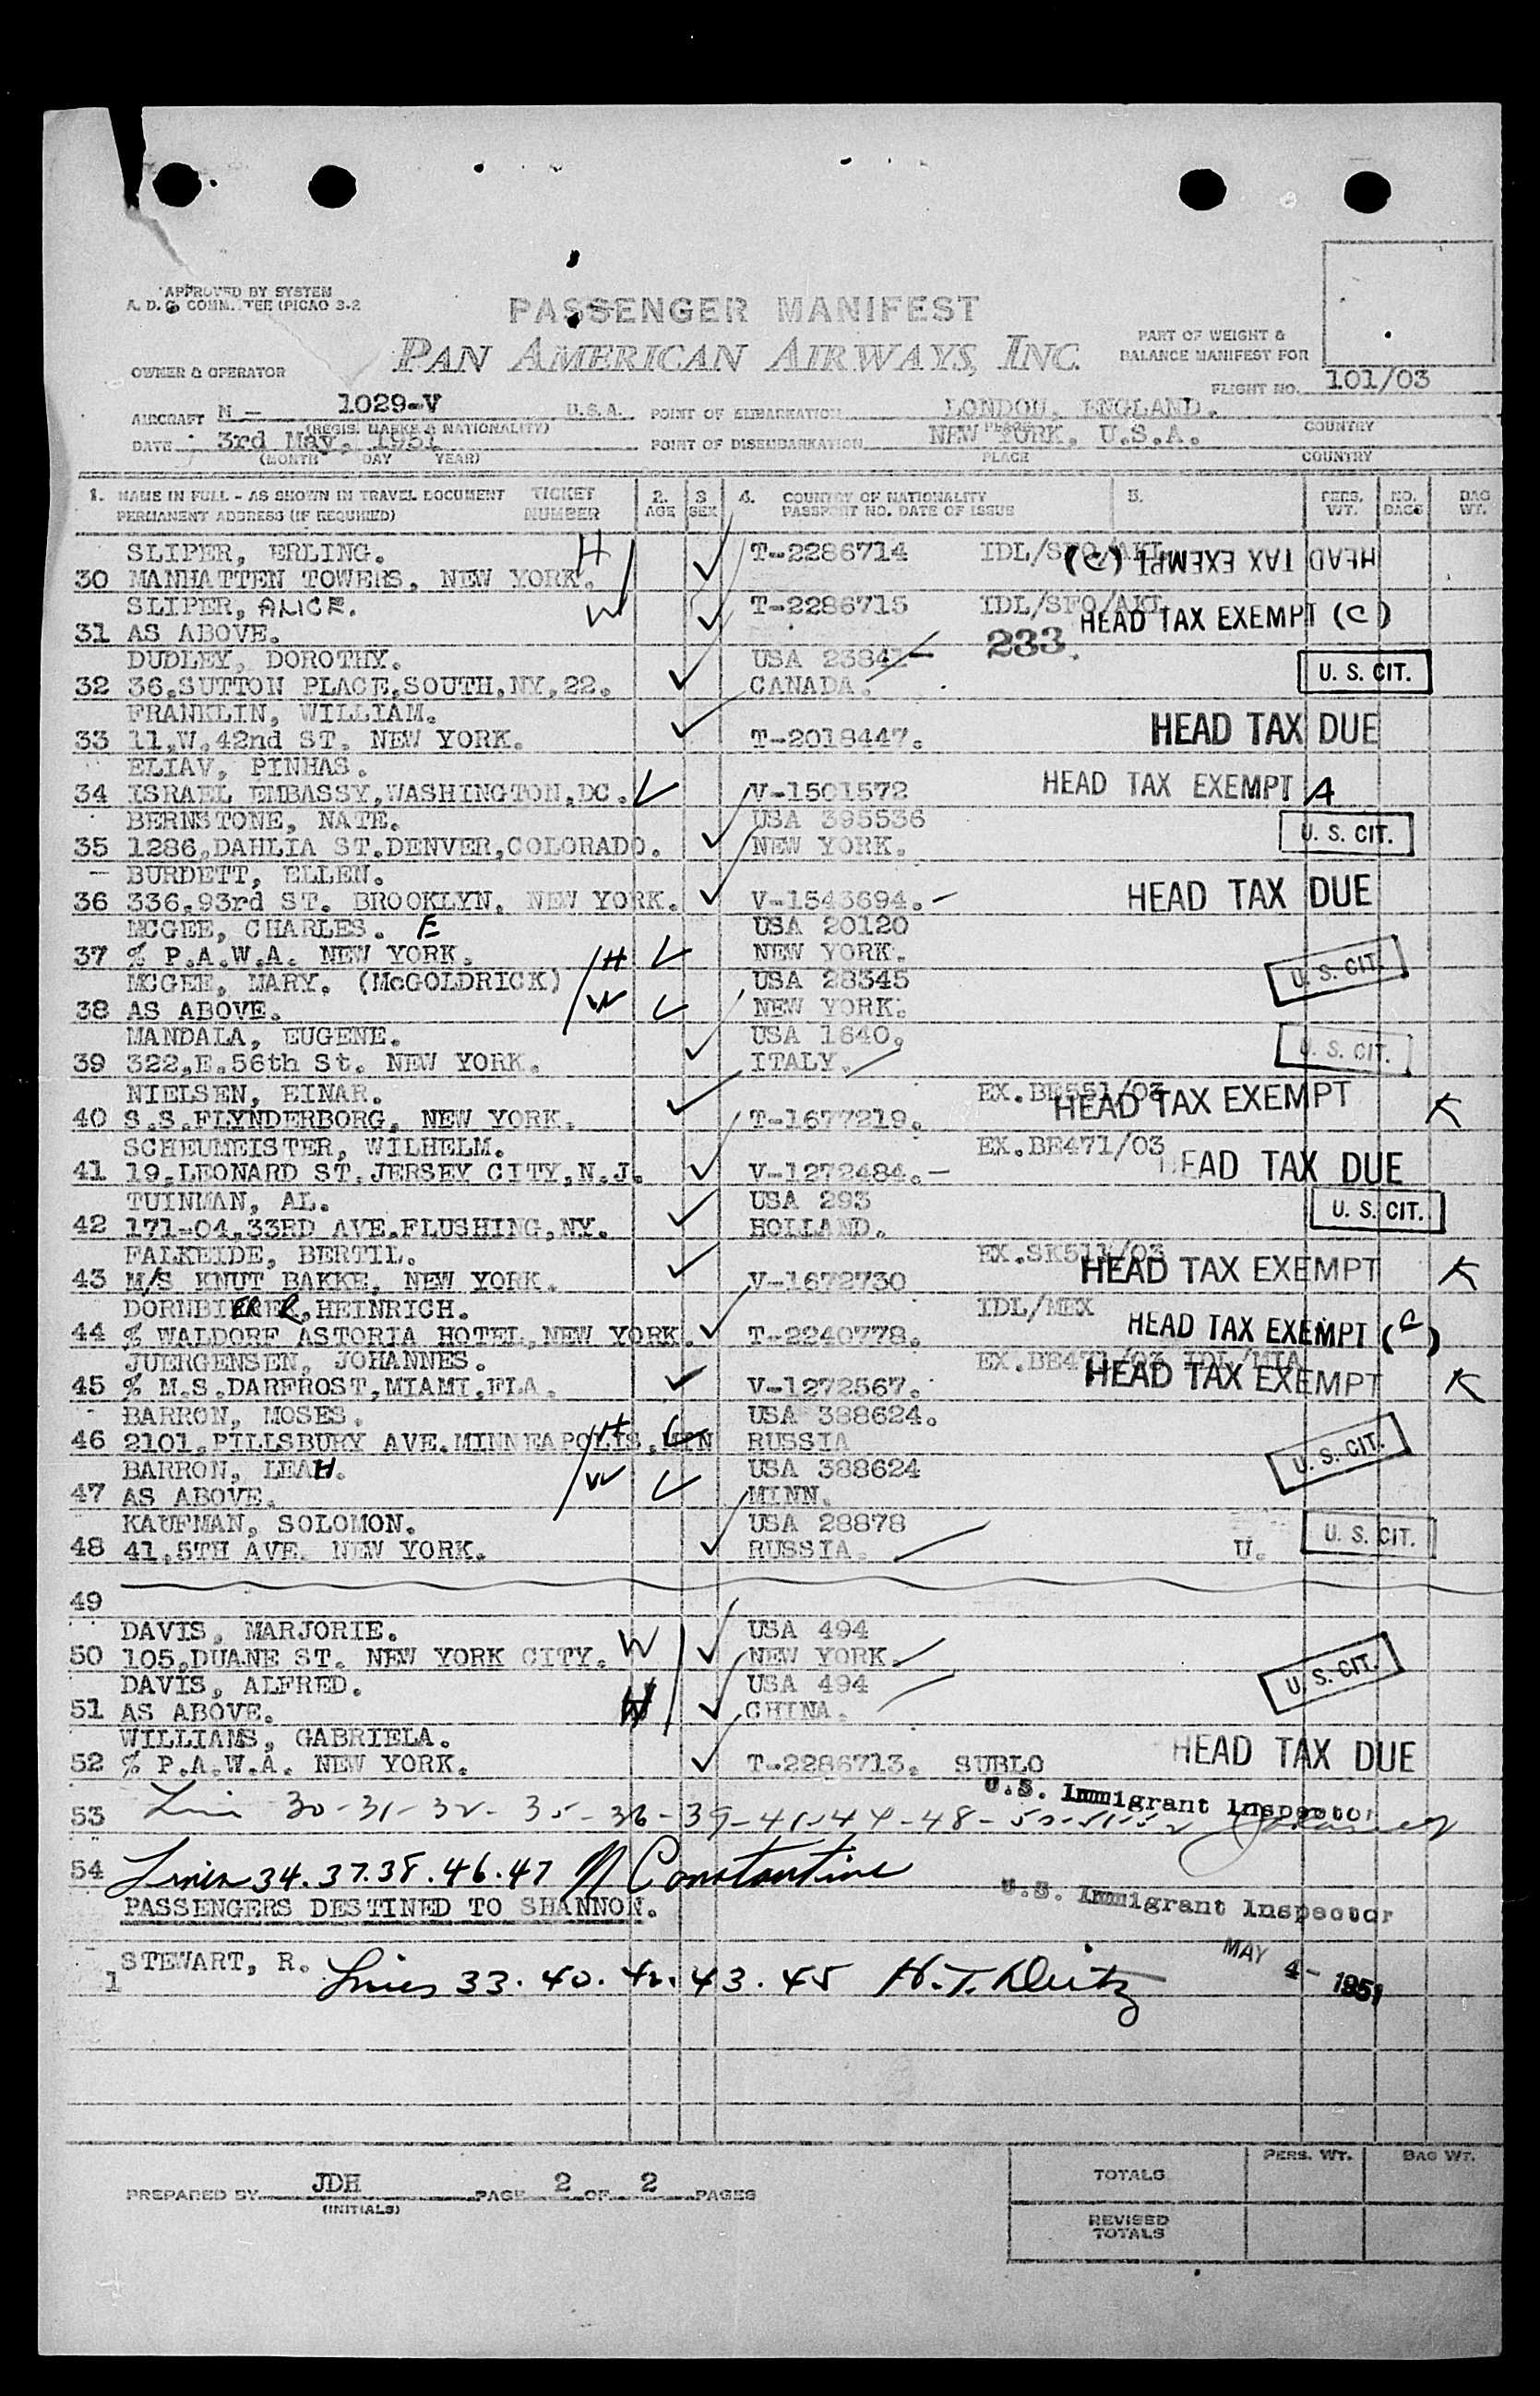 APPROVED BY SYSTEM
A. D. C. COMMITTEE (PICAO 3-2
PASSENGER MANIFEST
PAN AMERICAN AIRWAYS, INC.
PART OF WEIGHT &
BALANCE MANIFEST FOR
OWNER & OPERATOR
FLIGHT NO. 101/03
AIRCRAFT N - 1029-V U.S.A. POINT OF EMBARKATION LONDON, ENGLAND.
(REGIS. MARKS & NATIONALITY) PLACE COUNTRY
DATE 3rd May, 1951 POINT OF DISEMBARKATION NEW YORK, U.S.A.
(MONTH DAY YEAR) PLACE COUNTRY
1. NAME IN FULL - AS SHOWN IN TRAVEL DOCUMENT TICKET 2. 3 4. COUNTRY OF NATIONALITY 5. PERS. NO. BAG
PERMANENT ADDRESS (IF REQUIRED) NUMBER AGE SEX PASSPORT NO. DATE OF ISSUE WT. BAGS WT.
SLIPER, ERLING. H T-2286714 IDL/SFO/AKL HEAD TAX EXEMPT (C)
30 MANHATTEN TOWERS, NEW YORK.
SLIPER, ALICE. W T-2286715 IDL/SFO/AKL
31 AS ABOVE. HEAD TAX EXEMPT (C)
DUDLEY, DOROTHY. USA 23842 233.
32 36,SUTTON PLACE,SOUTH,NY,22. CANADA. U. S. CIT.
FRANKLIN, WILLIAM.
33 11,W,42nd ST. NEW YORK. T-2018447. HEAD TAX DUE
ELIAV, PINHAS.
34 ISRAEL EMBASSY,WASHINGTON,DC. V-1501572 HEAD TAX EXEMPT A
BERNSTONE, NATE. USA 395536
35 1286,DAHLIA ST.DENVER,COLORADO. NEW YORK. U. S. CIT.
BURDETT, ELLEN.
36 336,93rd ST. BROOKLYN, NEW YORK. V-1543694. HEAD TAX DUE
MCGEE, CHARLES. E USA 20120
37 % P.A.W.A. NEW YORK. H NEW YORK.
MCGEE, MARY. (McGOLDRICK) USA 28345 U. S. CIT.
38 AS ABOVE. W NEW YORK.
MANDALA, EUGENE. USA 1640,
39 322,E.56th St. NEW YORK. ITALY. U. S. CIT.
NIELSEN, EINAR. EX.BE551/03
40 S.S.FLYNDERBORG, NEW YORK. T-1677219. HEAD TAX EXEMPT K
SCHEUMEISTER, WILHELM. EX.BE471/03
41 19,LEONARD ST.JERSEY CITY,N.J. V-1272484. HEAD TAX DUE
TUINMAN, AL. USA 293
42 171-04,33RD AVE.FLUSHING,NY. HOLLAND. U. S. CIT.
FALKEIDE, BERTIL. EX.SK511/03
43 M/S KNUT BAKKE, NEW YORK. V-1672730 HEAD TAX EXEMPT K
DORNBIERER, HEINRICH. IDL/MEX
44 % WALDORF ASTORIA HOTEL,NEW YORK. T-2240778. HEAD TAX EXEMPT (C)
JUERGENSEN, JOHANNES. EX.BE471/03 IDL/MIA
45 % M.S.DARFROST,MIAMI,FLA. V-1272567. HEAD TAX EXEMPT K
BARRON, MOSES. USA 388624.
46 2101,PILLSBURY AVE.MINNEAPOLIS,MIN H RUSSIA
BARRON, LEAH. USA 388624 U. S. CIT.
47 AS ABOVE. W MINN.
KAUFMAN, SOLOMON. USA 28878
48 41,5TH AVE. NEW YORK. RUSSIA. U. U. S. CIT.
49
DAVIS, MARJORIE. USA 494
50 105,DUANE ST. NEW YORK CITY. W NEW YORK.
DAVIS, ALFRED. USA 494 U. S. CIT.
51 AS ABOVE. H CHINA.
WILLIAMS, GABRIELA.
52 % P.A.W.A. NEW YORK. T-2286713. SUBLO HEAD TAX DUE
U.S. Immigrant Inspector
53 30-31-32-35-36-39-41-44-48-50-51-52
54 Lines 34.37.38.46.47 N Constantine
U.S. Immigrant Inspector
PASSENGERS DESTINED TO SHANNON.
STEWART, R.
1 Lines 33.40.42.43.45 H.T. Deitz MAY 4- 1951
PREPARED BY JDH PAGE 2 OF 2 PAGES
(INITIALS)
PERS. WT. BAG WT.
TOTALS
REVISED
TOTALS